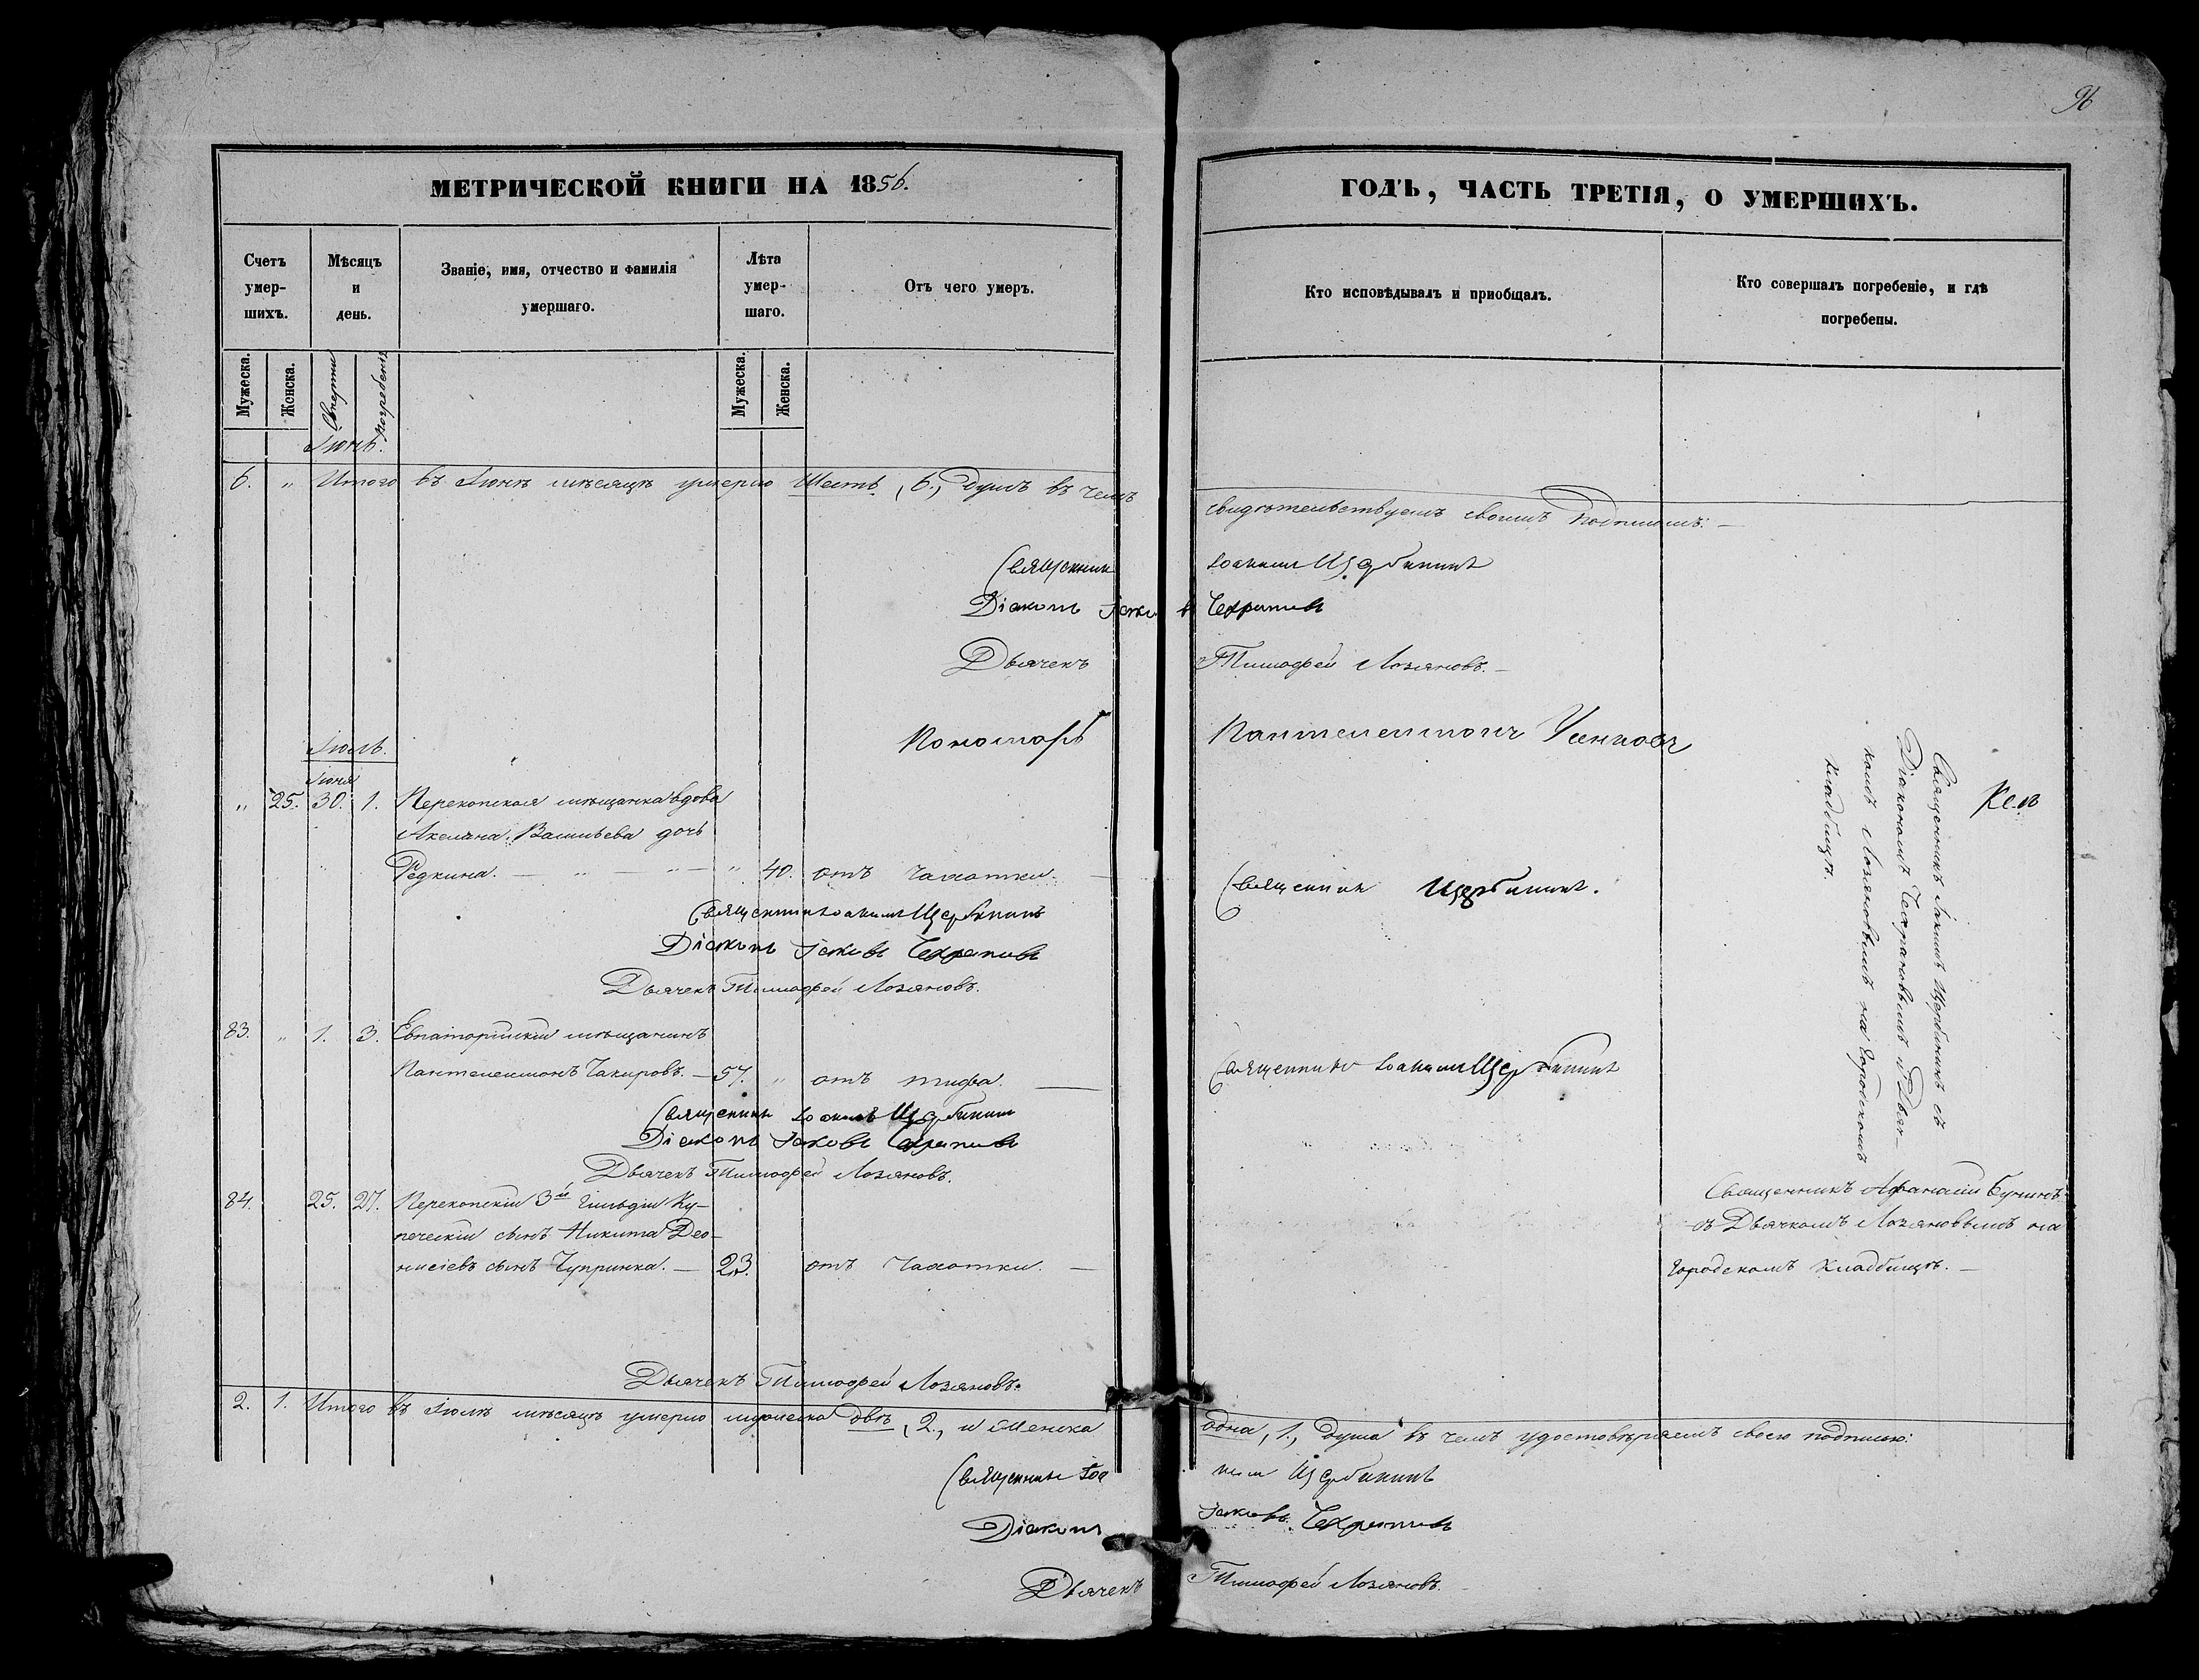 96
МЕТРИЧЕСКОЙ КНИГИ НА 1856.
ГОДЪ, ЧАСТЬ ТРЕТІЯ, О УМЕРШИХЪ.
Счетъ умер-шихъ.
Мѣсяцъ и день.
Званіе, имя, отчество и фамилія умершаго.
Лѣта умер-шаго.
Отъ чего умеръ.
Кто исповѣдывалъ и пріобщалъ.
Кто совершалъ погребеніе, и гдѣ погребены.
Мужеска.
Женска.
Смерти
Погребенія
Мужеска.
Женска.
Іюнь.
6. „ Итого въ Іюнѣ мѣсяцѣ умерло Шесть, 6, душъ въ чемъ свидѣтельствуемъ своимъ подписомъ: —
Священник Іоаким Щербининъ
Діаконъ Іаковъ
Дьячекъ Тимофей Лозановъ. —
Пономарь Пантелеимонъ
Іюль.
Іюня
„ 25. 30. 1. Перекопская мѣщанка вдова
Акелина Васильева дочь
Редкина. — „ — „ — „ 40. отъ чахотки. —
Священник Щербининъ.
Священник Іоаким Щербининъ
Діаконъ Іаковъ
Дьячекъ Тимофей Лозановъ.
Священникъ Іакимъ Щербининъ съ
Діакономъ и Дьяч-
комъ Лозановымъ на Городскомъ
кладбищѣ.
83. „ 1. 3. Евпаторійскій мѣщанинъ
Пантелеимонъ Чакировъ. — 57. „ отъ тифа. —
Священникъ Іоаким Щербининъ
Священникъ Іоакимъ Щербинин
Діаконъ Іаковъ
Дьячекъ Тимофей Лозановъ.
84. 25. 27. Перекопскій 3й гильдіи Ку-
печескій сынъ Никита Део-
нисіевъ сынъ Чупринка. — 23. отъ Чахотки. —
Священникъ Афанасій Бунинъ
съ Дьячкомъ Лозановымъ на
Городскомъ кладбищѣ. —
Дьячекъ Тимофей Лозановъ.
2. 1. Итого въ Іюлѣ мѣсяцѣ умерло мужеска двѣ, 2, и женска одна, 1, душа въ чемъ удостовѣряемъ своею подписью:
Священникъ Іоаким Щербининъ
Діаконъ Іаковъ
Дьячекъ Тимофей Лозановъ.